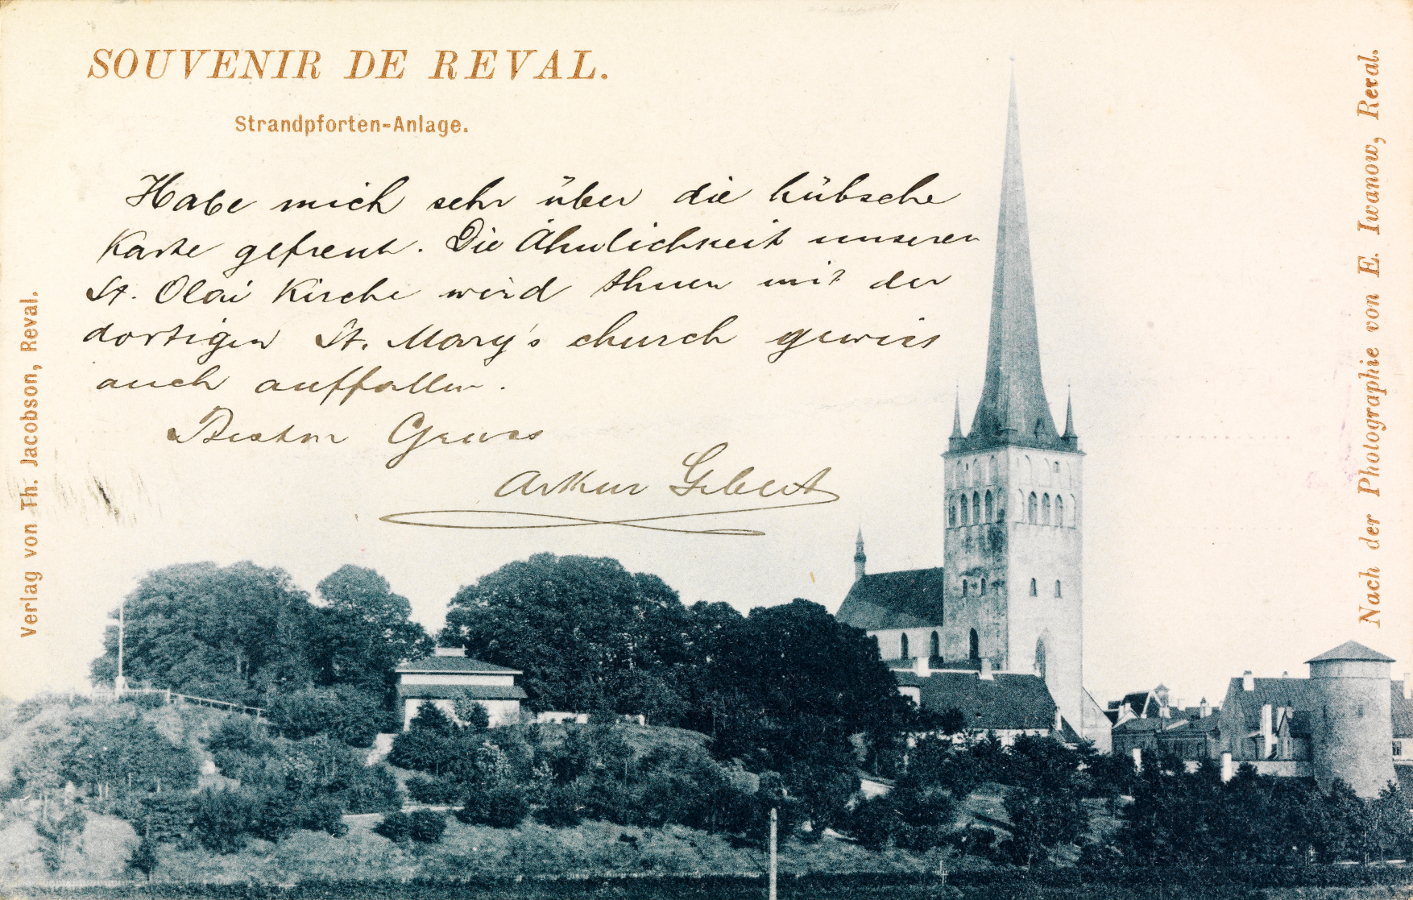 SOUVENIR DE REVAL.
Strandpforten-Anlage.
Habe mich sehr über die hübsche
Karte gefreut. Die Ähnlichkeit unserer
St. Olai Kirche wird Ihnen mit der
dortigen St. Mary's church gewiss
auch auffallen.
Besten Gruss
Verlag von Th. Jacobson, Reval.
Nach der Photographie von E. Iwanow, Reval.